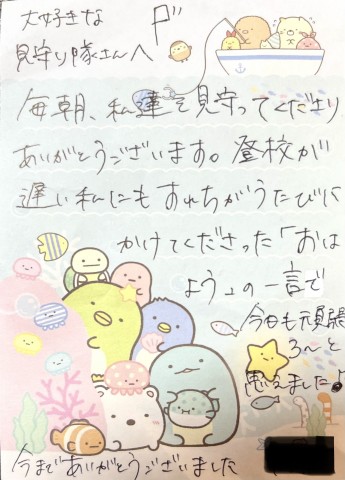 大好きな
見守り隊さんへ
毎朝、私達を見守ってくださり
ありがとうございます。登校が
遅い私にもすれちがうたびに
かけてくださった「おは
よう」の一言で
今日も頑張
ろ〜と
思えました♪
今までありがとうございました